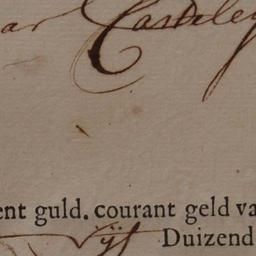 ar Cantley
ent guld. courant geld va
Vijf Duizend